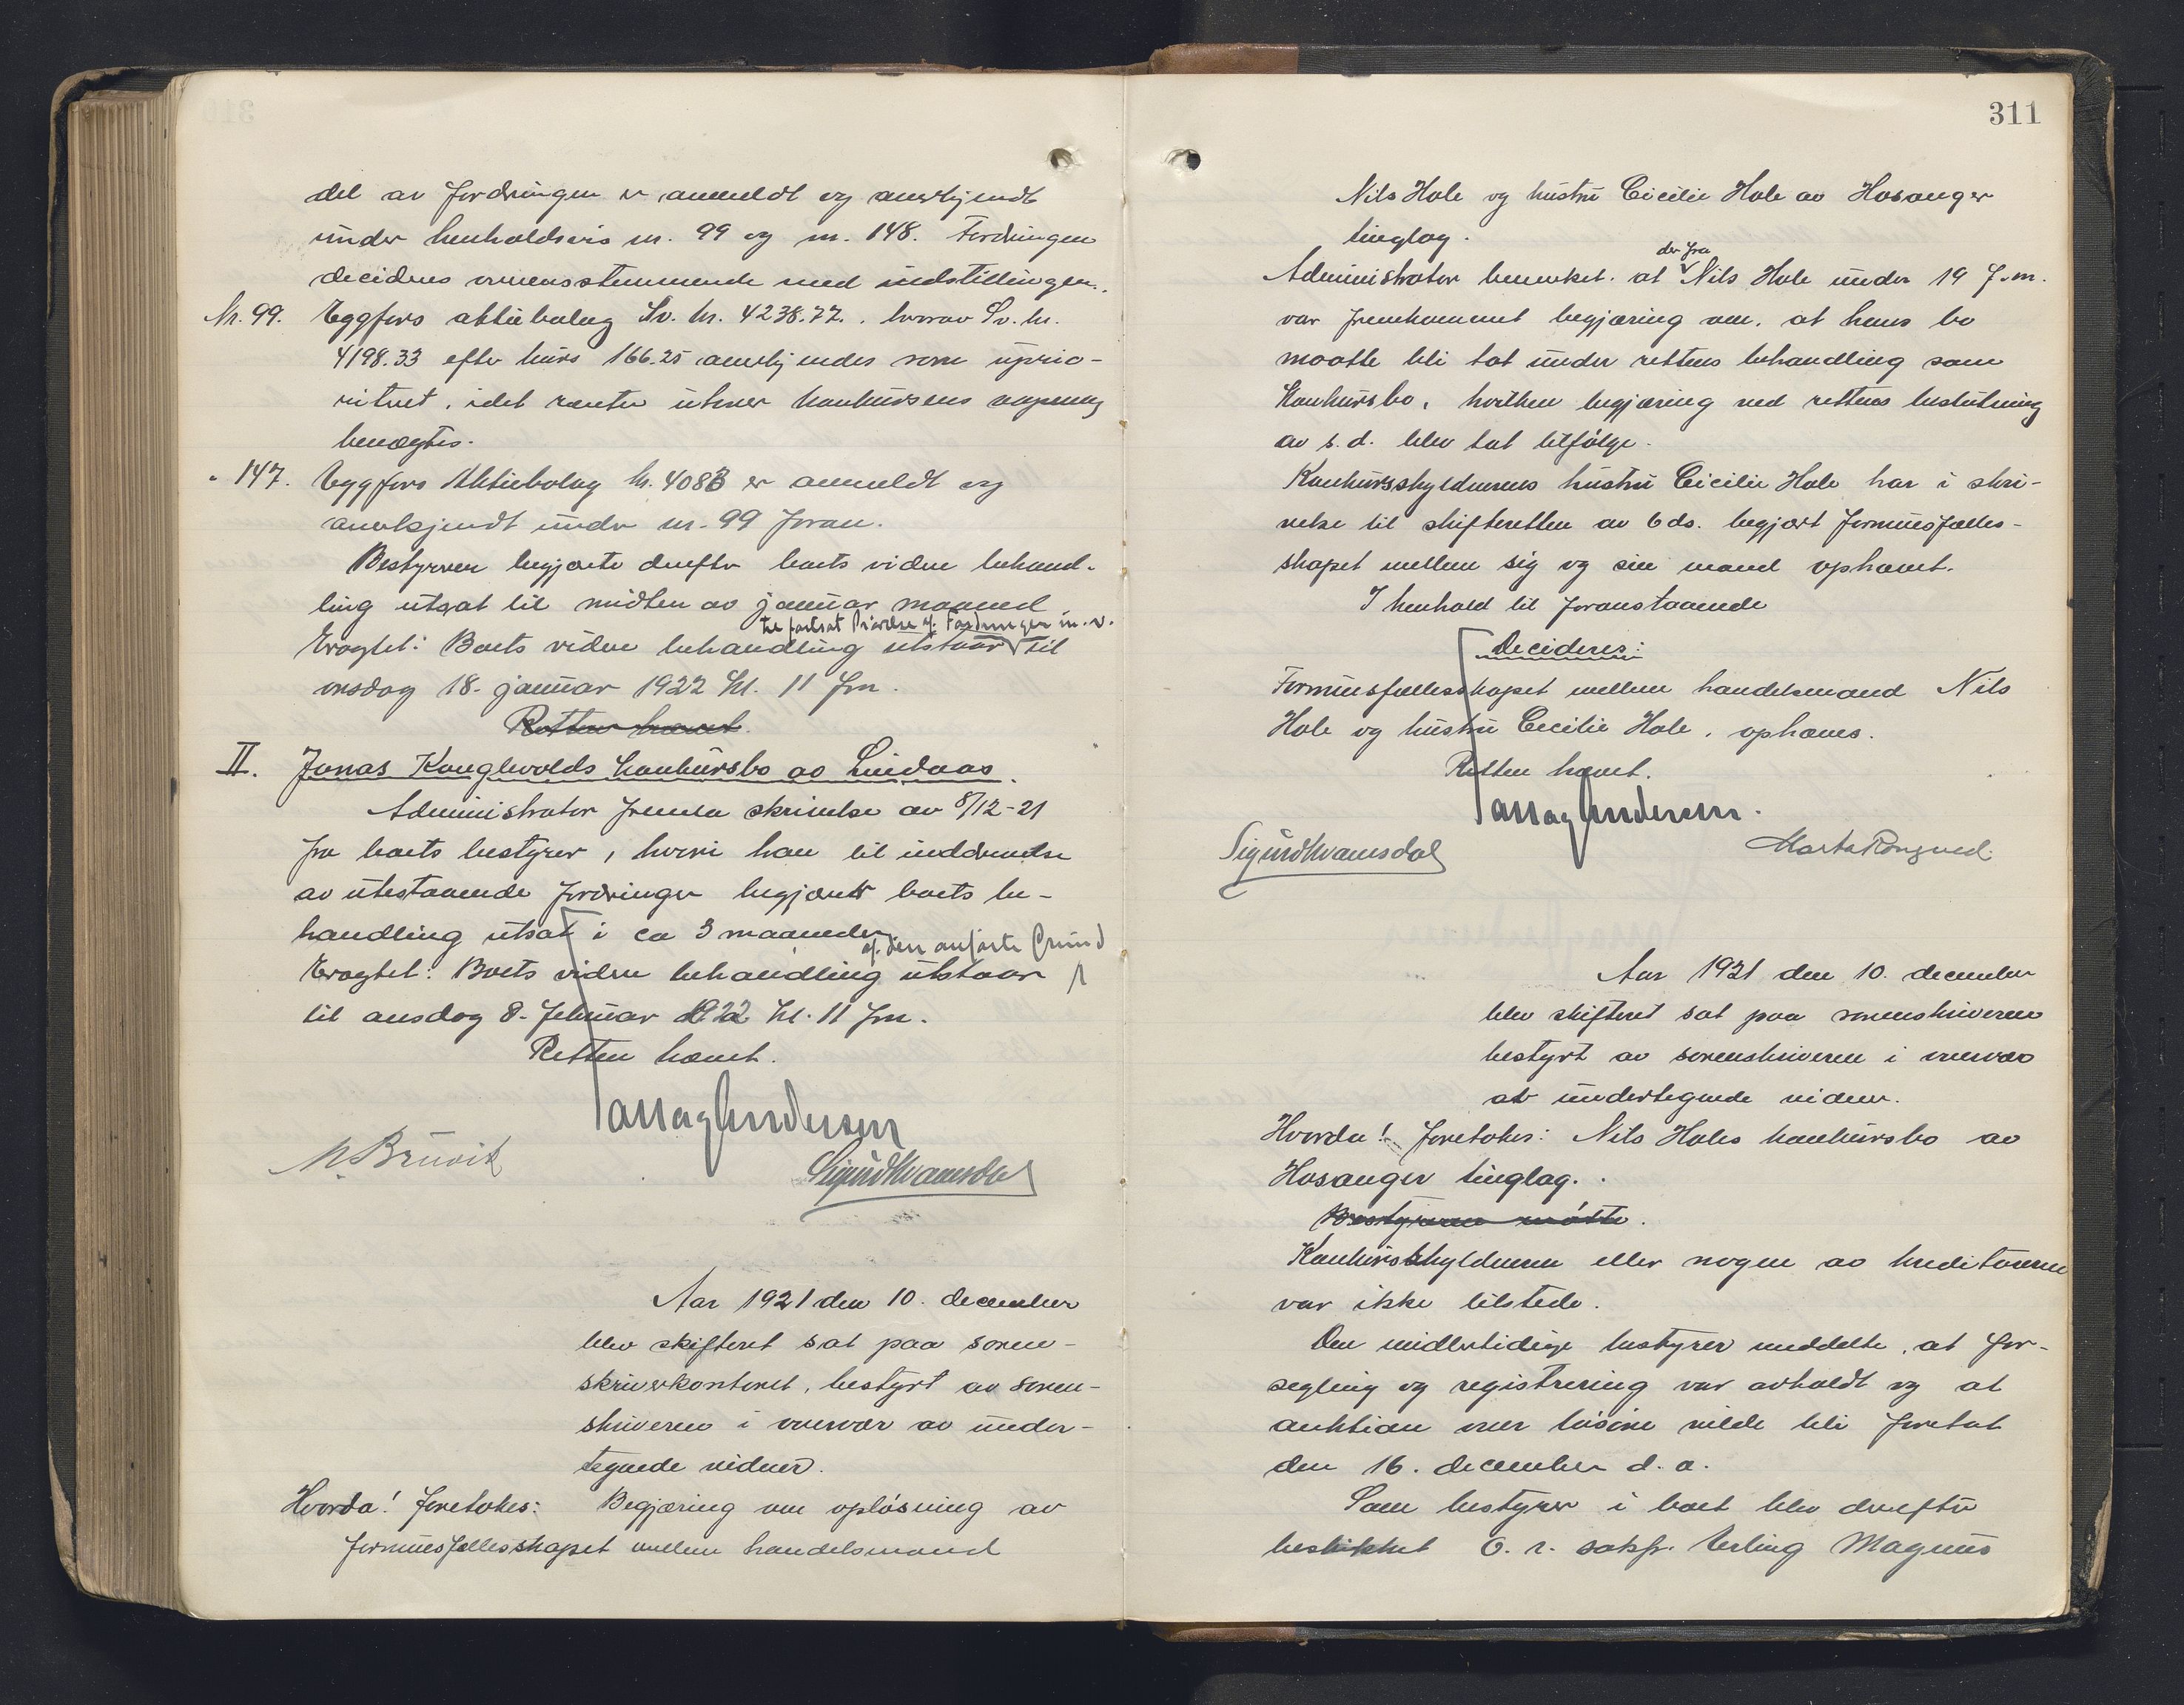 del av fordringen er anmeldt og anerkjendt
under henholdsvis nr. 99 og nr. 148. Fordringen
decideres overensstemmende med indstillingen.
Nr. 99. Eggfors aktiebolag Sv. kr. 4238.77., hvorav Sv. kr.
4198.33 efter kurs 166.25 anerkjendes som uprio-
ritert, idet renter utover konkursens aapning
benegtes.
" 147. Eggfors Aktiebolag kr. 4083 er anmeldt og
anerkjendt under nr. 99 foran.
Bestyreren begjærte derefter boets videre behand-
ling utsat til midten av januar maaned.
til fortsat Prøvelse af Fordringer m.v.
Eragtet: Boets videre behandling utstaar til
onsdag 18. januar 1922 kl. 11 fm.
Retten hævet.
II. Jonas Konglevolds konkursbo av Lindaas.
Administrator fremla skrivelse av 8/12-21
fra boets bestyrer, hvori han til inddrivelse
av utestaaende fordringer begjærer boets be-
handling utsat i ca 3 maaneder.
af den anførte Grund
Eragtet: Boets videre behandling utstaar
til onsdag 8. februar 1922 kl. 11 fm.
Retten hævet.
Andersen
M. Bruvik
Sigurd Kvamsdal
Aar 1921 den 10. december
blev skifteret sat paa soren-
skriverkontoret, bestyrt av soren-
skriveren i overvær av under-
tegnede vidner.
Hvorda! foretokes: Begjæring om opløsning av
formuesfællesskapet mellem handelsmand
311
Nils Hole og hustru Cicilie Hole av Hosanger
tinglag.
der fra
Administrator bemerket at Nils Hole under 19 f.m.
var fremkommet begjæring om, at hans bo
maatte bli tat under rettens behandling som
konkursbo, hvilken begjæring ved rettens beslutning
av s.d. blev tat tilfølge.
Konkursskyldnerens hustru Cicilie Hole har i skri-
velse til skifteretten av 6 ds. begjært formuesfælles-
skapet mellem sig og sin mand ophævet.
I henhold til foranstaaende
Decideres:
Formuesfællesskapet mellem handelsmand Nils
Hole og hustru Cecilie Hole, ophæves.
Retten hævet.
Andersen.
Sigurd Kvamsdal
Marta
Aar 1921 den 10. december
blev skifteret sat paa sorenskriveren
bestyrt av sorenskriveren i overvær
av undertegnede vidner.
Hvorda! foretokes: Nils Holes konkursbo av
Hosanger tinglag.
Bestyreren møtte.
Konkursskyldneren eller nogen av kreditorerne
var ikke tilstede.
Den midlertidige bestyrer meddelte, at for-
segling og registrering var avholdt og at
auktion over løsøre vilde bli foretat
den 16. december d.a.
Som bestyrer i boet blev derefter
beskikket O.r. sakfr. Erling Magnus